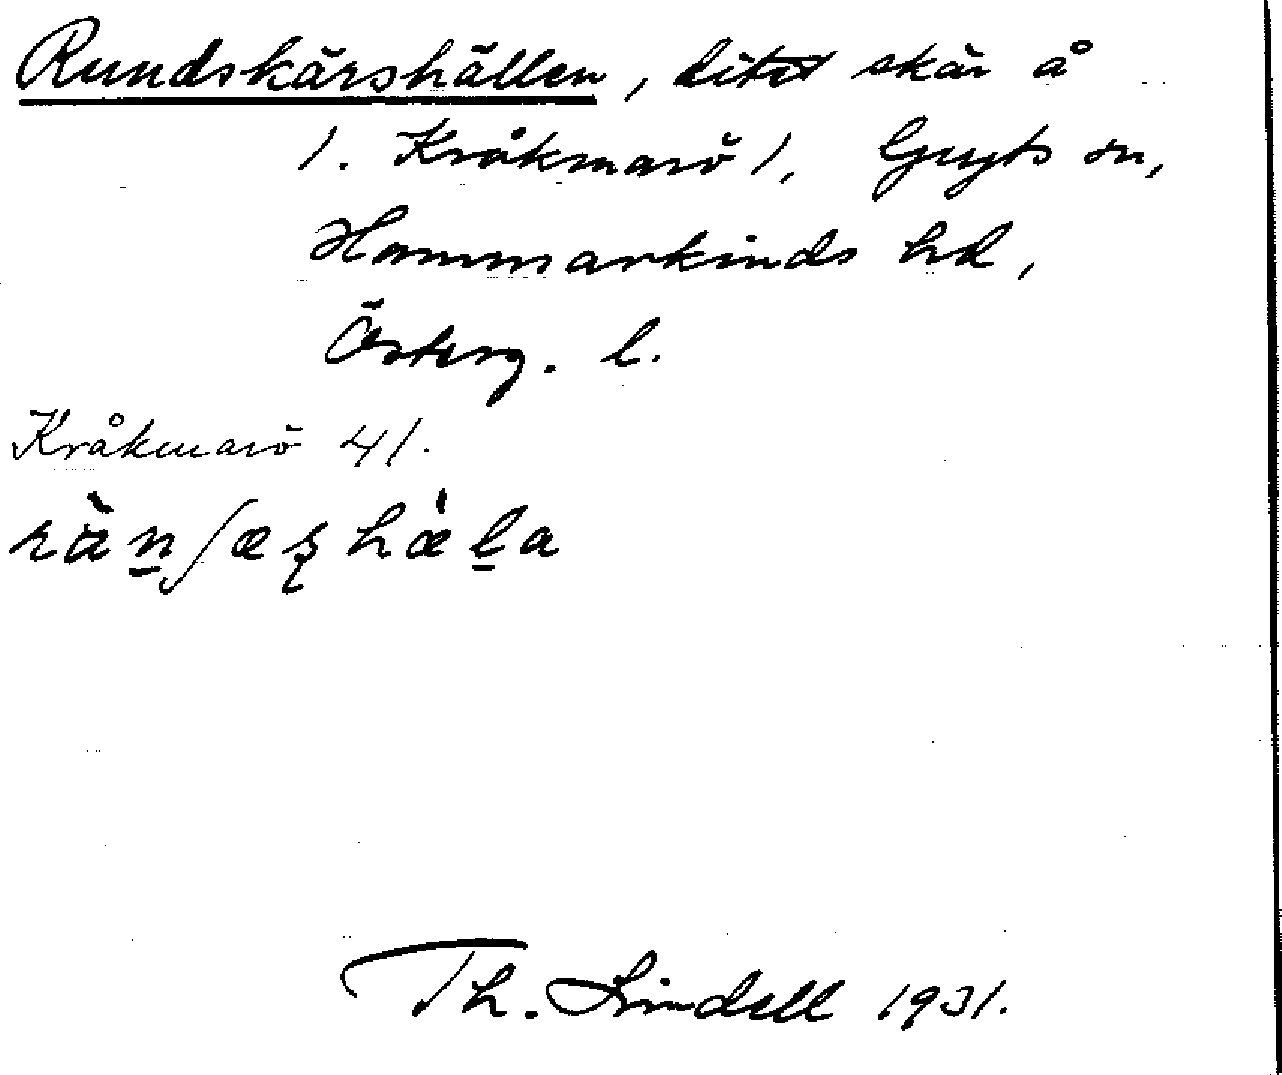 Rundskärshällen, litet skär å
1. Kråkmarö 1, Gryts sn,
Hammarkinds hd,
Österg. l.
Kråkmarö 41.
Th. Lindell 1931.